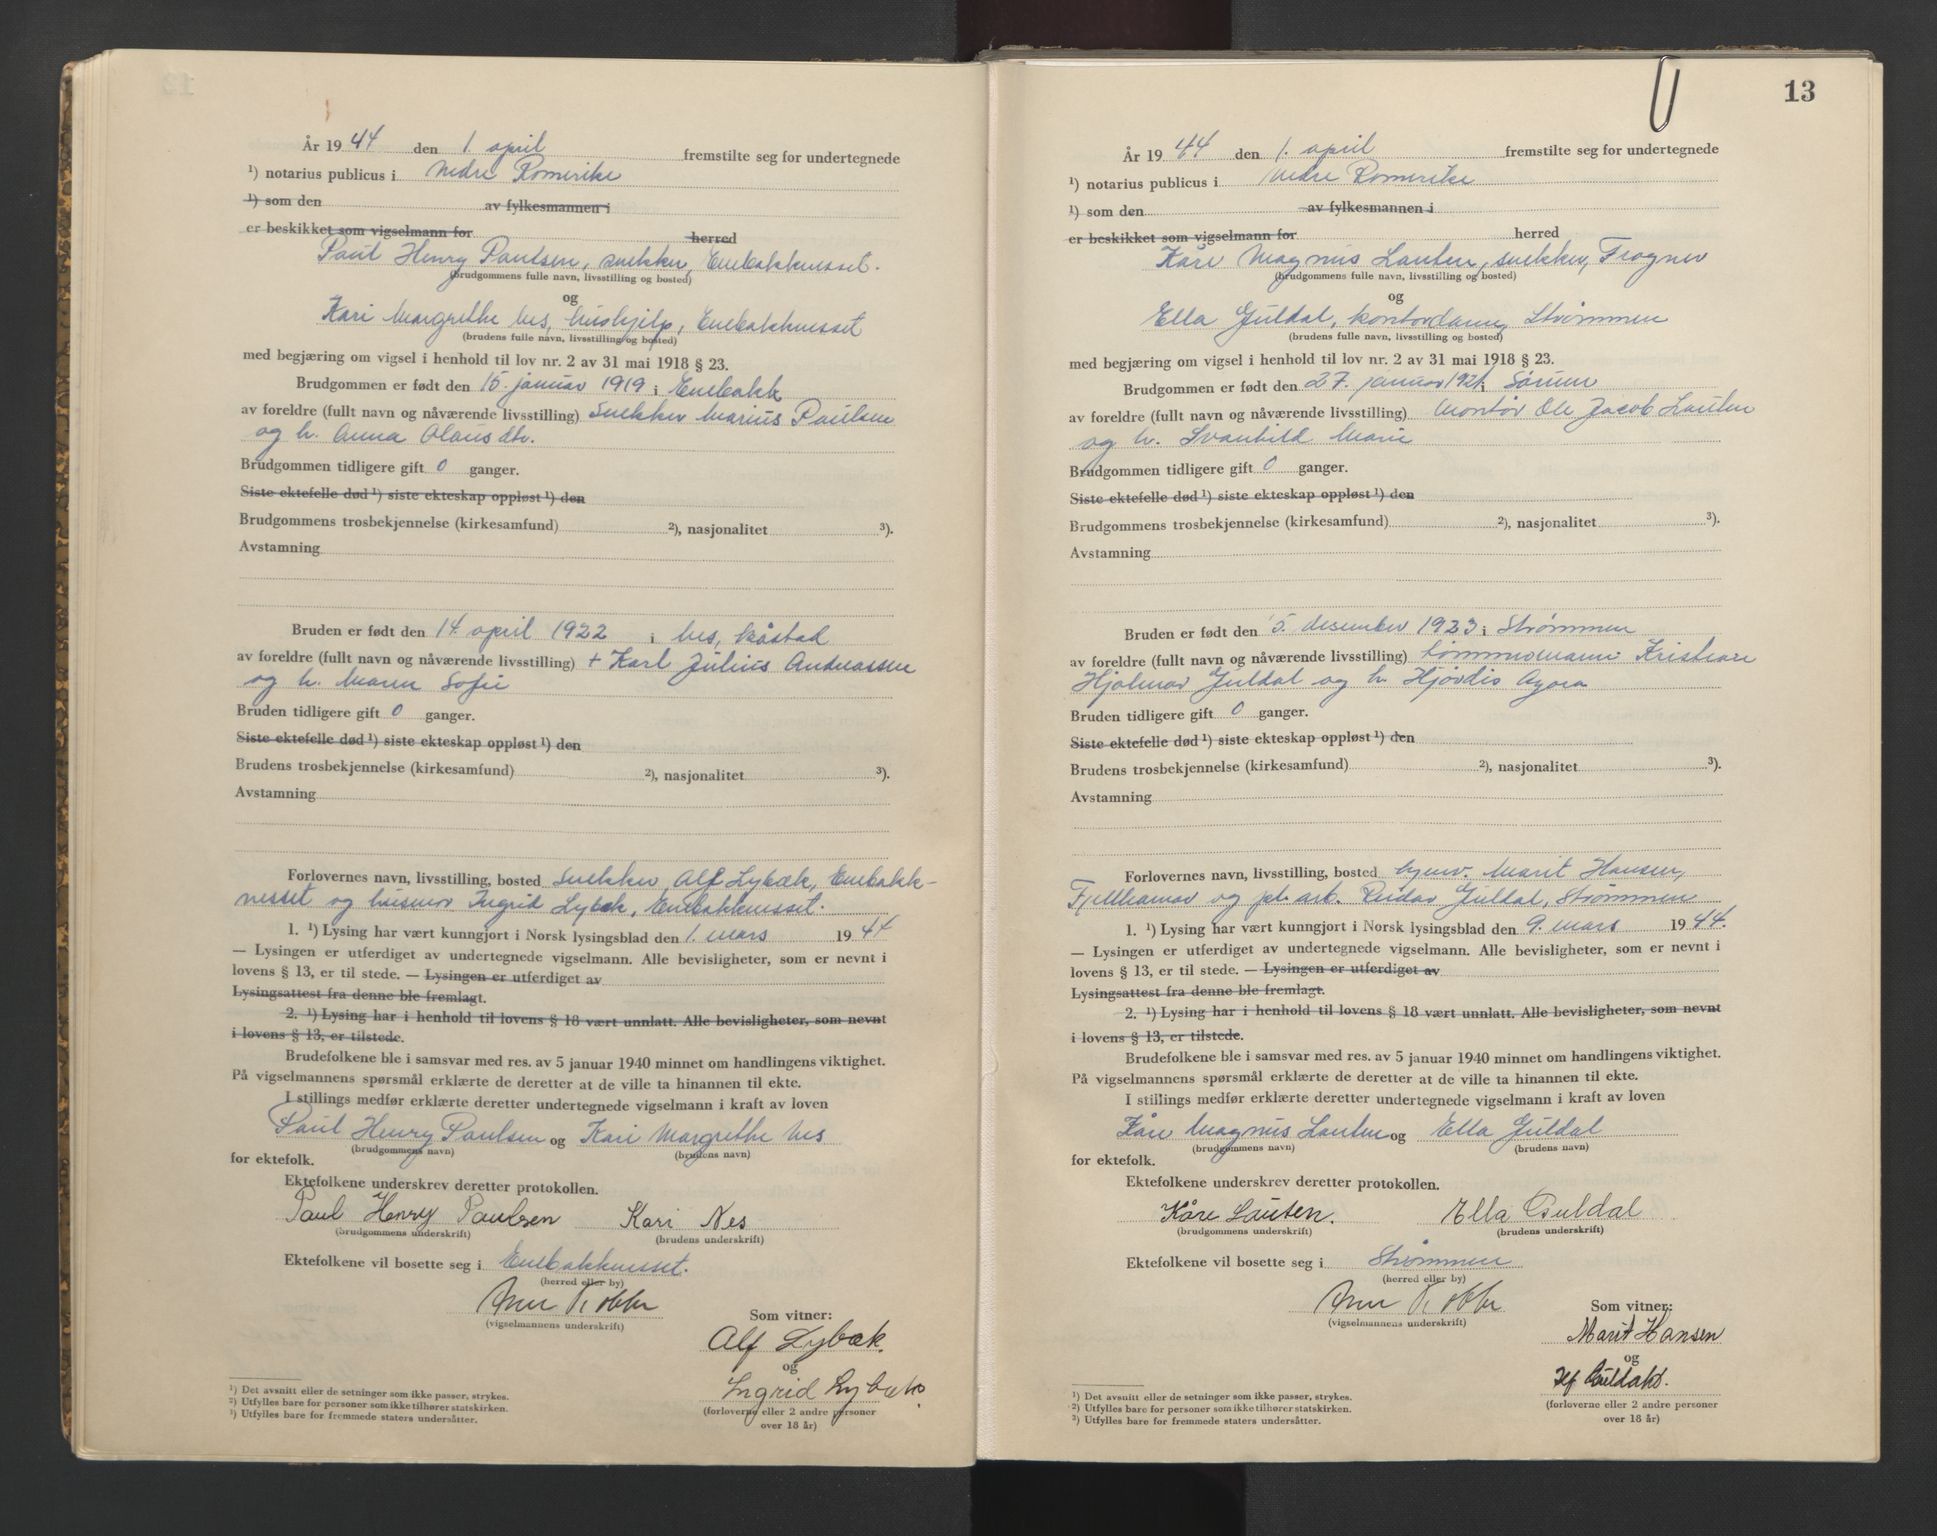 År 1944 den 1. april fremstilte seg for undertegnede
¹) notarius publicus i Nedre Romerike
¹) som den av fylkesmannen i
er beskikket som vigselmann for herred
Paul Henry Paulsen, snekker, Enebakkneset.
(brudgommens fulle navn, livsstilling og bosted)
og
Kari Margrethe Nes, hushjelp, Enebakkneset
(brudens fulle navn, livsstilling og bosted)
med begjæring om vigsel i henhold til lov nr. 2 av 31 mai 1918 § 23.
Brudgommen er født den 15. januar 1919 i Enebakk
av foreldre (fullt navn og nåværende livsstilling) Snekker Marius Paulsen
og h. Anna Olausdtr.
Brudgommen tidligere gift 0 ganger.
Siste ektefelle død ¹) siste ekteskap oppløst ¹) den
Brudgommens trosbekjennelse (kirkesamfund) ²), nasjonalitet ³).
Avstamning
Bruden er født den 14. april 1922 i Nes, Kåstad
av foreldre (fullt navn og nåværende livsstilling) + Karl Julius Andreassen
og h. Maren Sofie
Bruden tidligere gift 0 ganger.
Siste ektefelle død ¹) siste ekteskap oppløst ¹) den
Brudens trosbekjennelse (kirkesamfund) ²), nasjonalitet ³).
Avstamning
Forlovernes navn, livsstilling, bosted Snekker Alf Lybæk, Enebakk-
nesset og husmor Ingrid Lybæk, Enebakknesset.
1. ¹) Lysing har vært kunngjort i Norsk lysingsblad den 1. mars 1944
— Lysingen er utferdiget av undertegnede vigselmann. Alle bevisligheter, som er nevnt i
lovens § 13, er til stede. — Lysingen er utferdiget av
Lysingsattest fra denne ble fremlagt.
2. ¹) Lysing har i henhold til lovens § 18 vært unnlatt. Alle bevisligheter, som nevnt
i lovens § 13, er tilstede.
Brudefolkene ble i samsvar med res. av 5 januar 1940 minnet om handlingens viktighet.
På vigselmannens spørsmål erklærte de deretter at de ville ta hinannen til ekte.
I stillings medfør erklærte deretter undertegnede vigselmann i kraft av loven
Paul Henry Paulsen og Kari Margrethe Nes
(brudgommens navn) (brudens navn)
for ektefolk.
Ektefolkene underskrev deretter protokollen.
Paul Henry Paulsen Kari Nes
(brudgommens underskrift) (brudens underskrift)
Ektefolkene vil bosette seg i Enebakknesset.
(herred eller by)
(vigselmannens underskrift)
Som vitner:
Alf Lybæk.
og
Ingrid Lybæk.
(forloverne eller 2 andre personer
over 18 år)
¹) Det avsnitt eller de setninger som ikke passer, strykes.
²) Utfylles bare for personer som ikke tilhører statskirken.
³) Utfylles bare for fremmede staters undersåtter.
13
År 1944 den 1. april fremstilte seg for undertegnede
¹) notarius publicus i Nedre Romerike
¹) som den av fylkesmannen i
er beskikket som vigselmann for herred
Kåre Magnus Lauten, snekker, Frogner
(brudgommens fulle navn, livsstilling og bosted)
og
Ella Guldal, kontordame, Strømmen
(brudens fulle navn, livsstilling og bosted)
med begjæring om vigsel i henhold til lov nr. 2 av 31 mai 1918 § 23.
Brudgommen er født den 27. januar 1921 i Sørum
av foreldre (fullt navn og nåværende livsstilling) Montør Ole Jacob Lauten
og h. Svanhild Marie
Brudgommen tidligere gift 0 ganger.
Siste ektefelle død ¹) siste ekteskap oppløst ¹) den
Brudgommens trosbekjennelse (kirkesamfund) ²), nasjonalitet ³).
Avstamning
Bruden er født den 5. desember 1923 i Strømmen
av foreldre (fullt navn og nåværende livsstilling) tømmermann Kristian
Hjalmar Guldal og h. Hjørdis Agora
Bruden tidligere gift 0 ganger.
Siste ektefelle død ¹) siste ekteskap oppløst ¹) den
Brudens trosbekjennelse (kirkesamfund) ²), nasjonalitet ³).
Avstamning
Forlovernes navn, livsstilling, bosted Marit Hansen,
Fjellhamar og pl. arb. Reidar Guldal, Strømmen
1. ¹) Lysing har vært kunngjort i Norsk lysingsblad den 9. mars 1944.
— Lysingen er utferdiget av undertegnede vigselmann. Alle bevisligheter, som er nevnt i
lovens § 13, er til stede. — Lysingen er utferdiget av
Lysingsattest fra denne ble fremlagt.
2. ¹) Lysing har i henhold til lovens § 18 vært unnlatt. Alle bevisligheter, som nevnt
i lovens § 13, er tilstede.
Brudefolkene ble i samsvar med res. av 5 januar 1940 minnet om handlingens viktighet.
På vigselmannens spørsmål erklærte de deretter at de ville ta hinannen til ekte.
I stillings medfør erklærte deretter undertegnede vigselmann i kraft av loven
Kåre Magnus Lauten og Ella Guldal
(brudgommens navn) (brudens navn)
for ektefolk.
Ektefolkene underskrev deretter protokollen.
Kåre Lauten. Ella Guldal
(brudgommens underskrift) (brudens underskrift)
Ektefolkene vil bosette seg i Strømmen
(herred eller by)
(vigselmannens underskrift)
Som vitner:
Marit Hansen
og
Guldahl.
(forloverne eller 2 andre personer
over 18 år)
¹) Det avsnitt eller de setninger som ikke passer, strykes.
²) Utfylles bare for personer som ikke tilhører statskirken.
³) Utfylles bare for fremmede staters undersåtter.